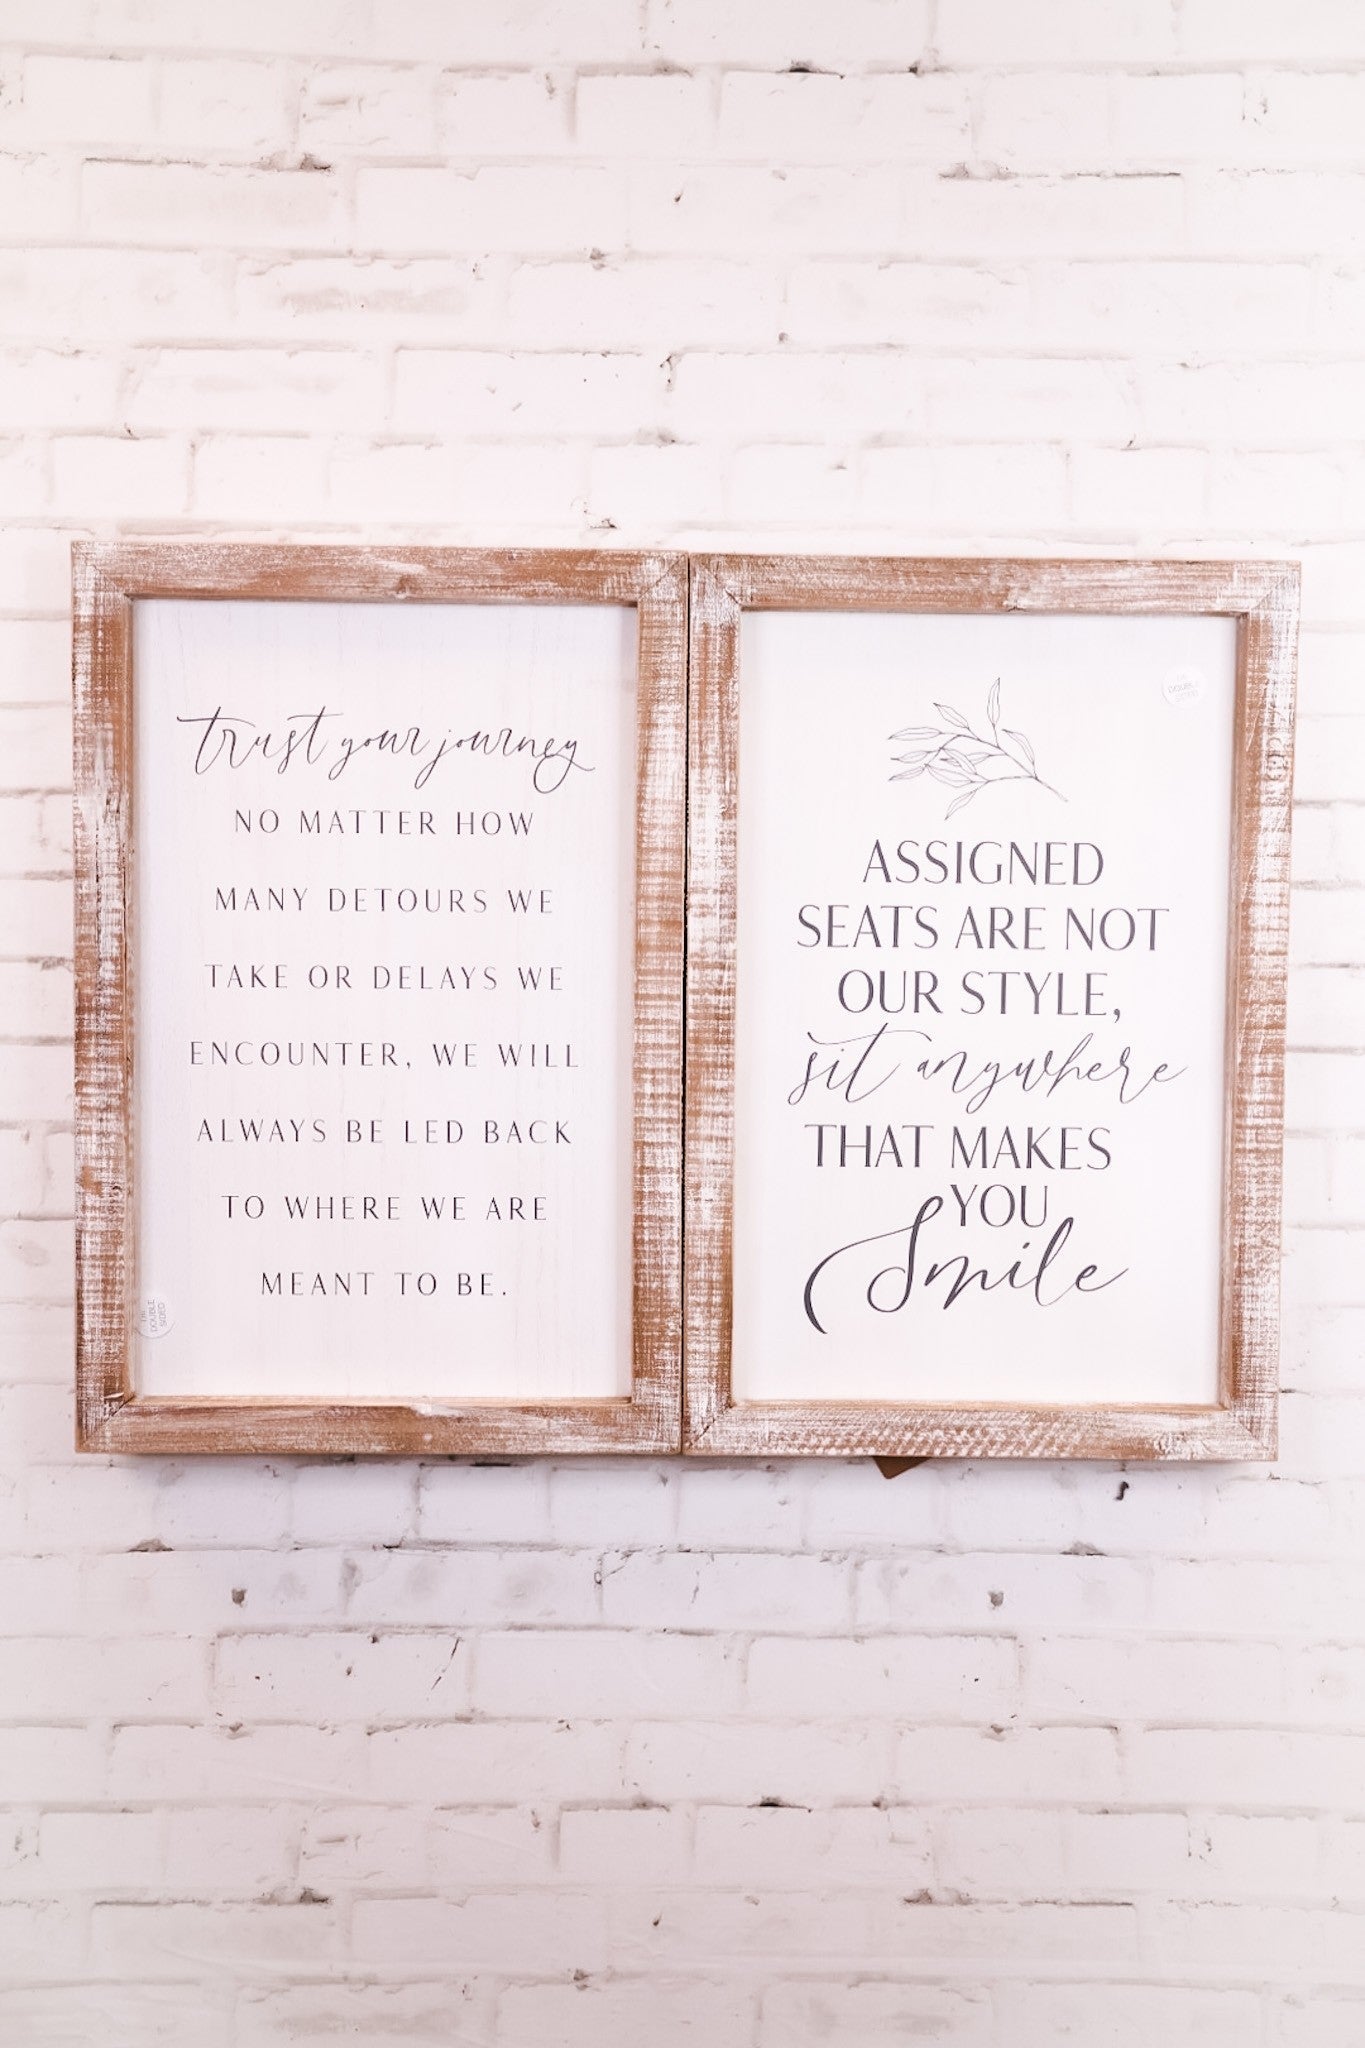 trust your journey
NO MATTER HOW
MANY DETOURS WE
TAKE OR DELAYS WE
ENCOUNTER, WE WILL
ALWAYS BE LED BACK
TO WHERE WE ARE
MEANT TO BE.
DOUBLE
SIDED
ASSIGNED
SEATS ARE NOT
OUR STYLE,
sit anywhere
THAT MAKES
YOU
Smile
DOUBLE
SIDED